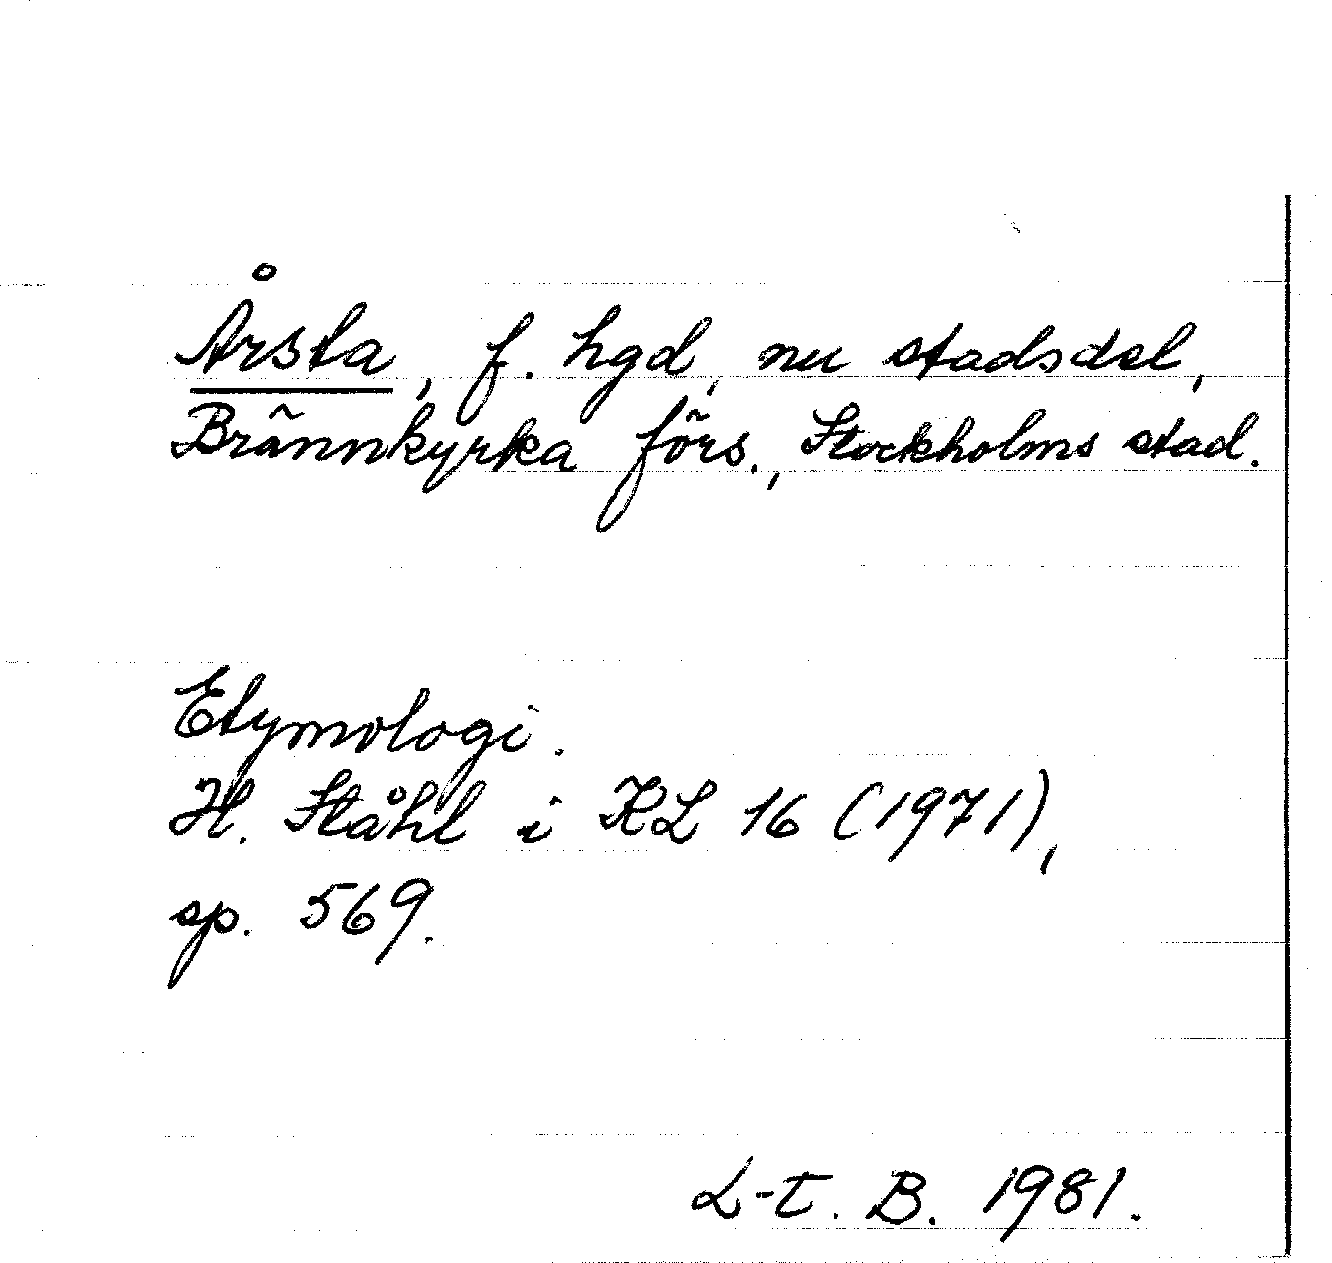 Årsta, f. hgd, nu stadsdel,
Brännkyrka förs., Stockholms stad.
Etymologi.
H. Ståhl i KL 16 (1971),
sp. 569.
L-t. B. 1981.